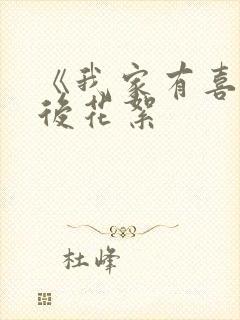 《我家有喜
後花絮
杜峰